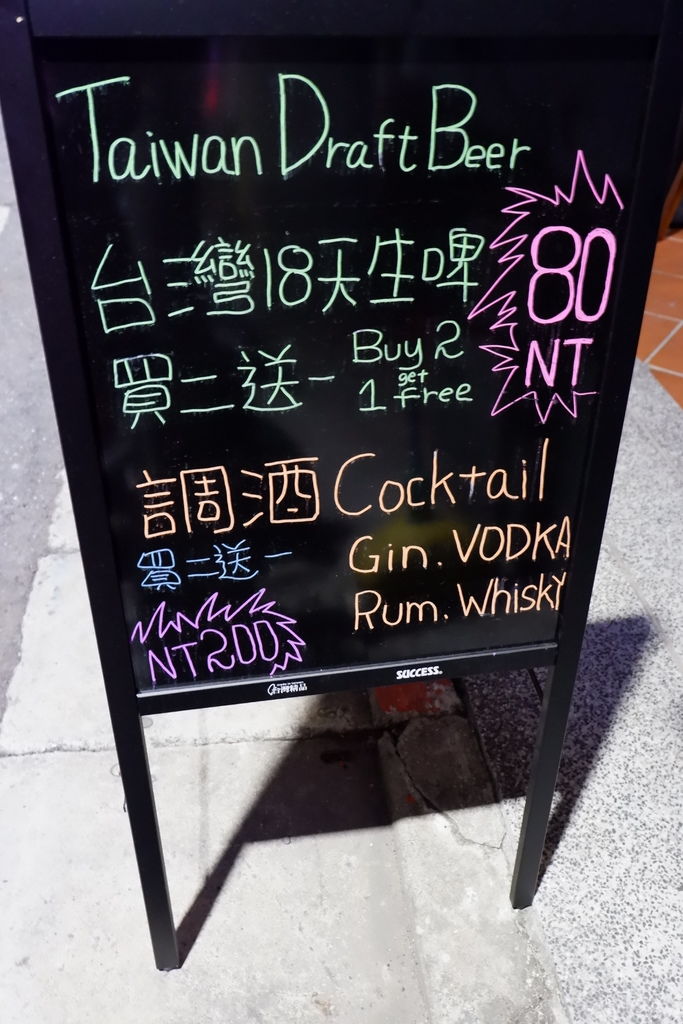 Taiwan Draft Beer
台灣18天生啤
80
NT
買二送一
Buy 2
get
1 free
調酒 Cocktail
買二送一
Gin. VODKA
Rum. Whisky
NT200
台灣精品
SUCCESS.